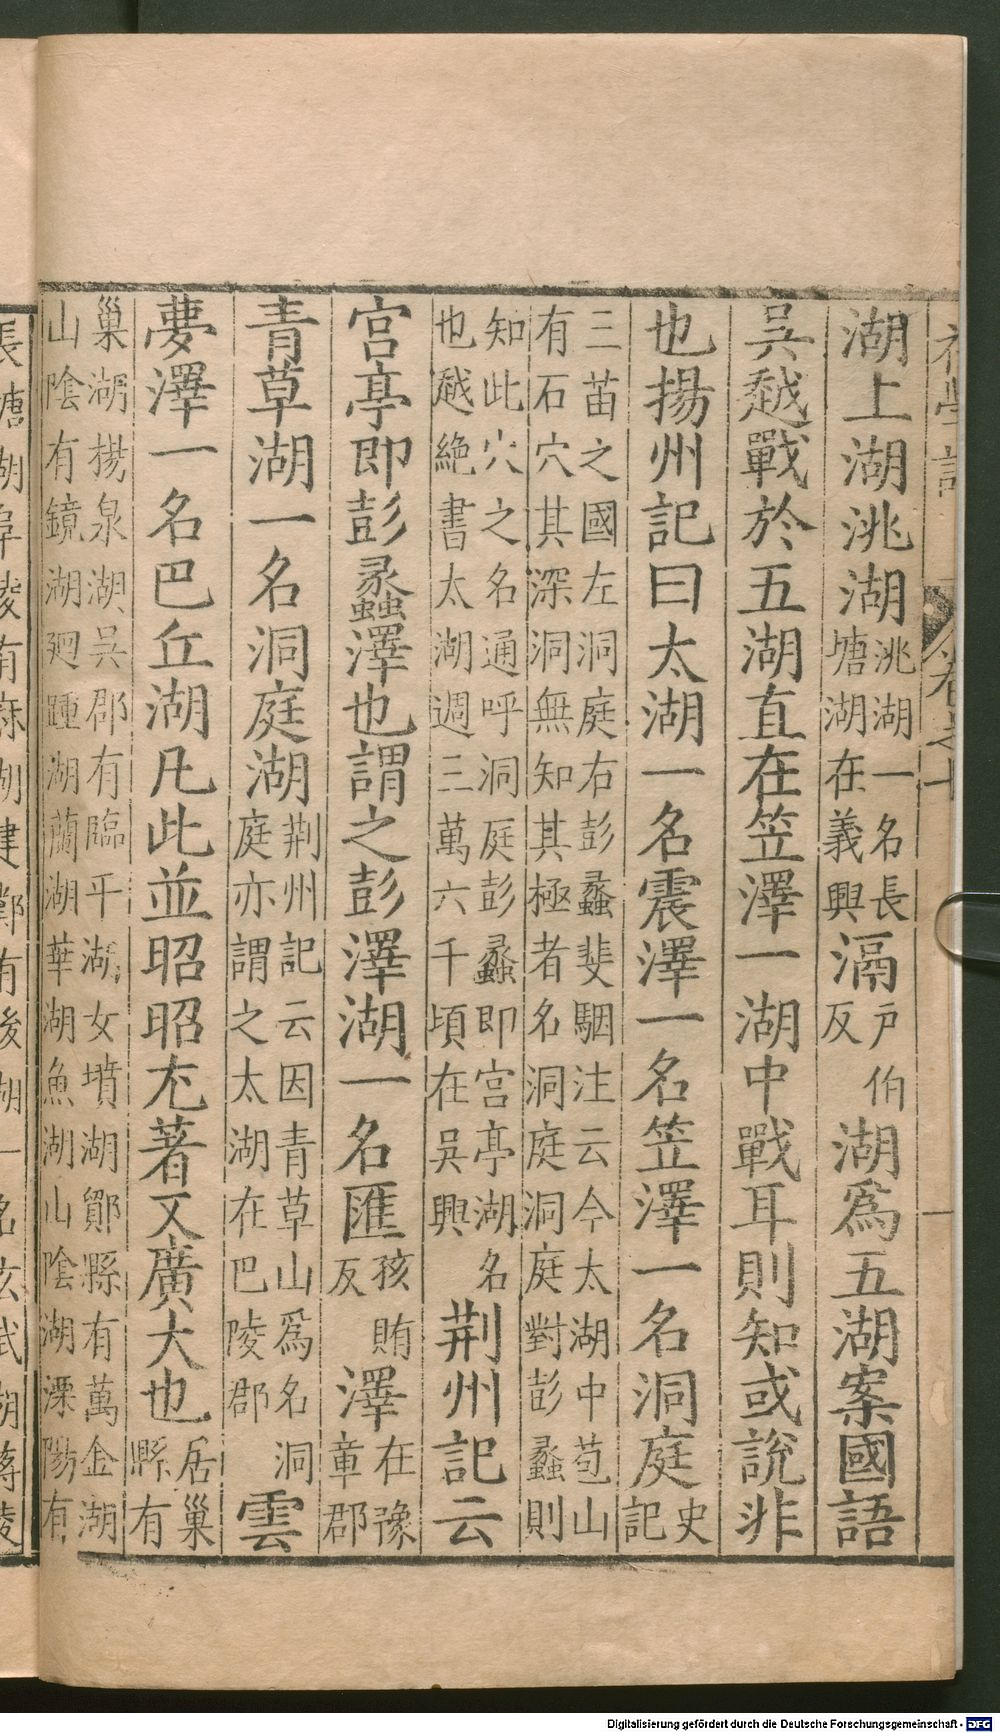 湖上湖洮湖洮湖一名長塘湖在義興滆戸伯反湖爲五湖案國語
吳越戰於五湖直在笠澤一湖中戰耳則知或說非
也揚州記曰太湖一名震澤一名笠澤一名洞庭史記
三苗之國左洞庭右彭蠡斐駰注云今太湖中苞山
有石穴其深洞無知其極者名洞庭洞庭對彭蠡則
知此穴之名通呼洞庭彭蠡即宫亭湖名
也越絶書太湖週三萬六千頃在吳興荆州記云
宫亭即彭蠡澤也謂之彭澤湖一名匯孩賄反澤在豫章郡
青草湖一名洞庭湖荆州記云因青草山爲名洞庭亦謂之太湖在巴陵郡雲
夢澤一名巴丘湖凡此並昭昭尤著又廣大也居巢縣有
巢湖楊泉湖吳郡有臨平湖女墳湖鄮縣有萬金湖
山隂有鏡湖廻踵湖蘭湖華湖魚湖山隂湖溧陽有
長塘湖
湖建鄴有後湖一名玄武湖蔣陵
初學記
卷之七
Digitalisierung gefördert durch die Deutsche Forschungsgemeinschaft - DFG